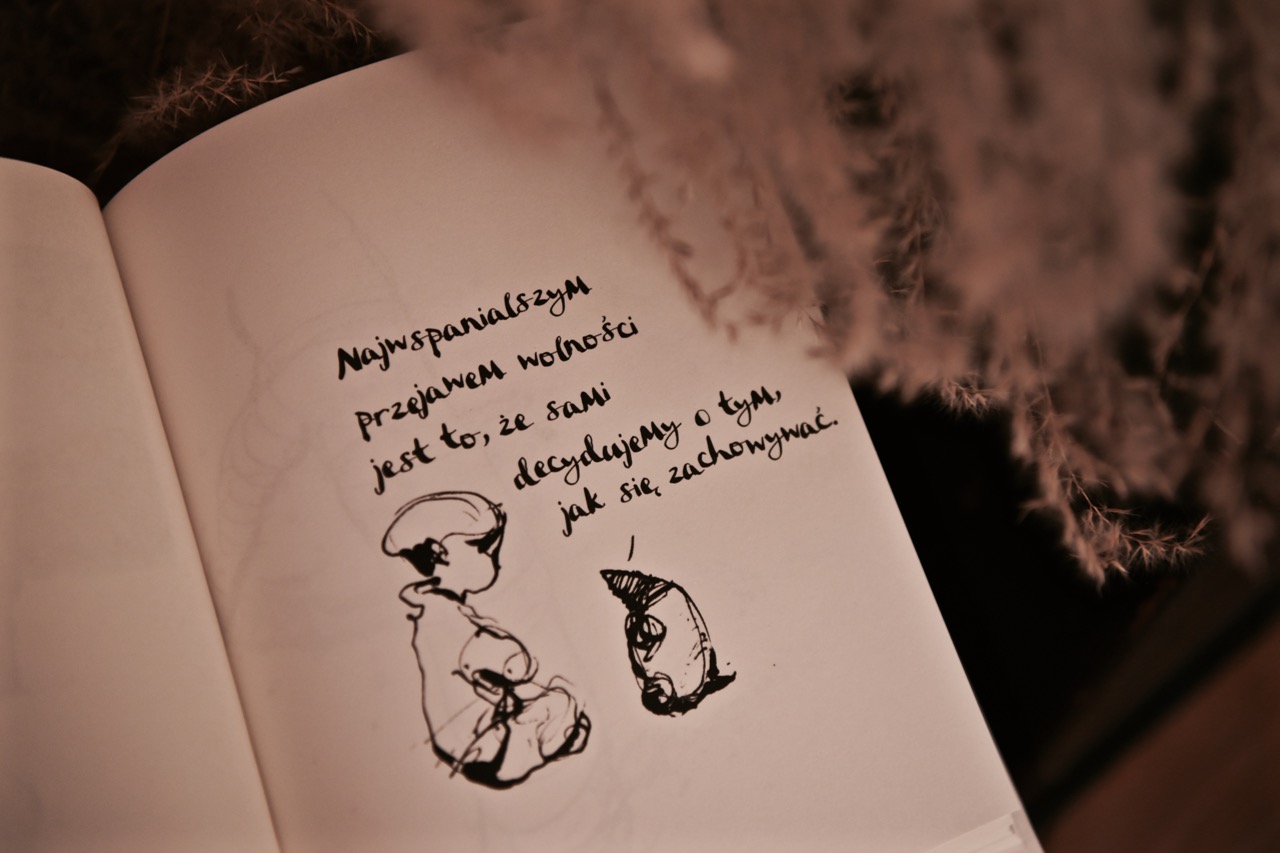 Najwspanialszym
przejawem wolności
jest to, że sami
decydujemy o tym,
jak się zachowywać.